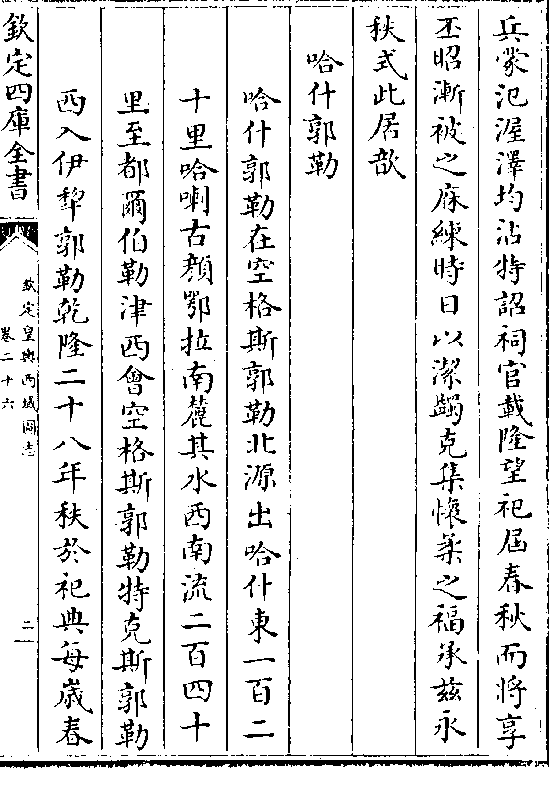 兵蒙氾渥澤均沾特詔祠官載隆望祀屆春秋而將享
丕昭漸被之庥練時日以潔蠲克集懷柔之福承兹永
秩式此居歆
哈什郭勒
哈什郭勒在空格斯郭勒北源出哈什東一百二
十里哈喇古顔鄂拉南麓其水西南流二百四十
里至都爾伯勒津西會空格斯郭勒特克斯郭勒
西入伊犂郭勒乾隆二十八年秩於祀典每嵗春
欽定四庫全書
欽定皇輿西域圖志
卷二十六
二